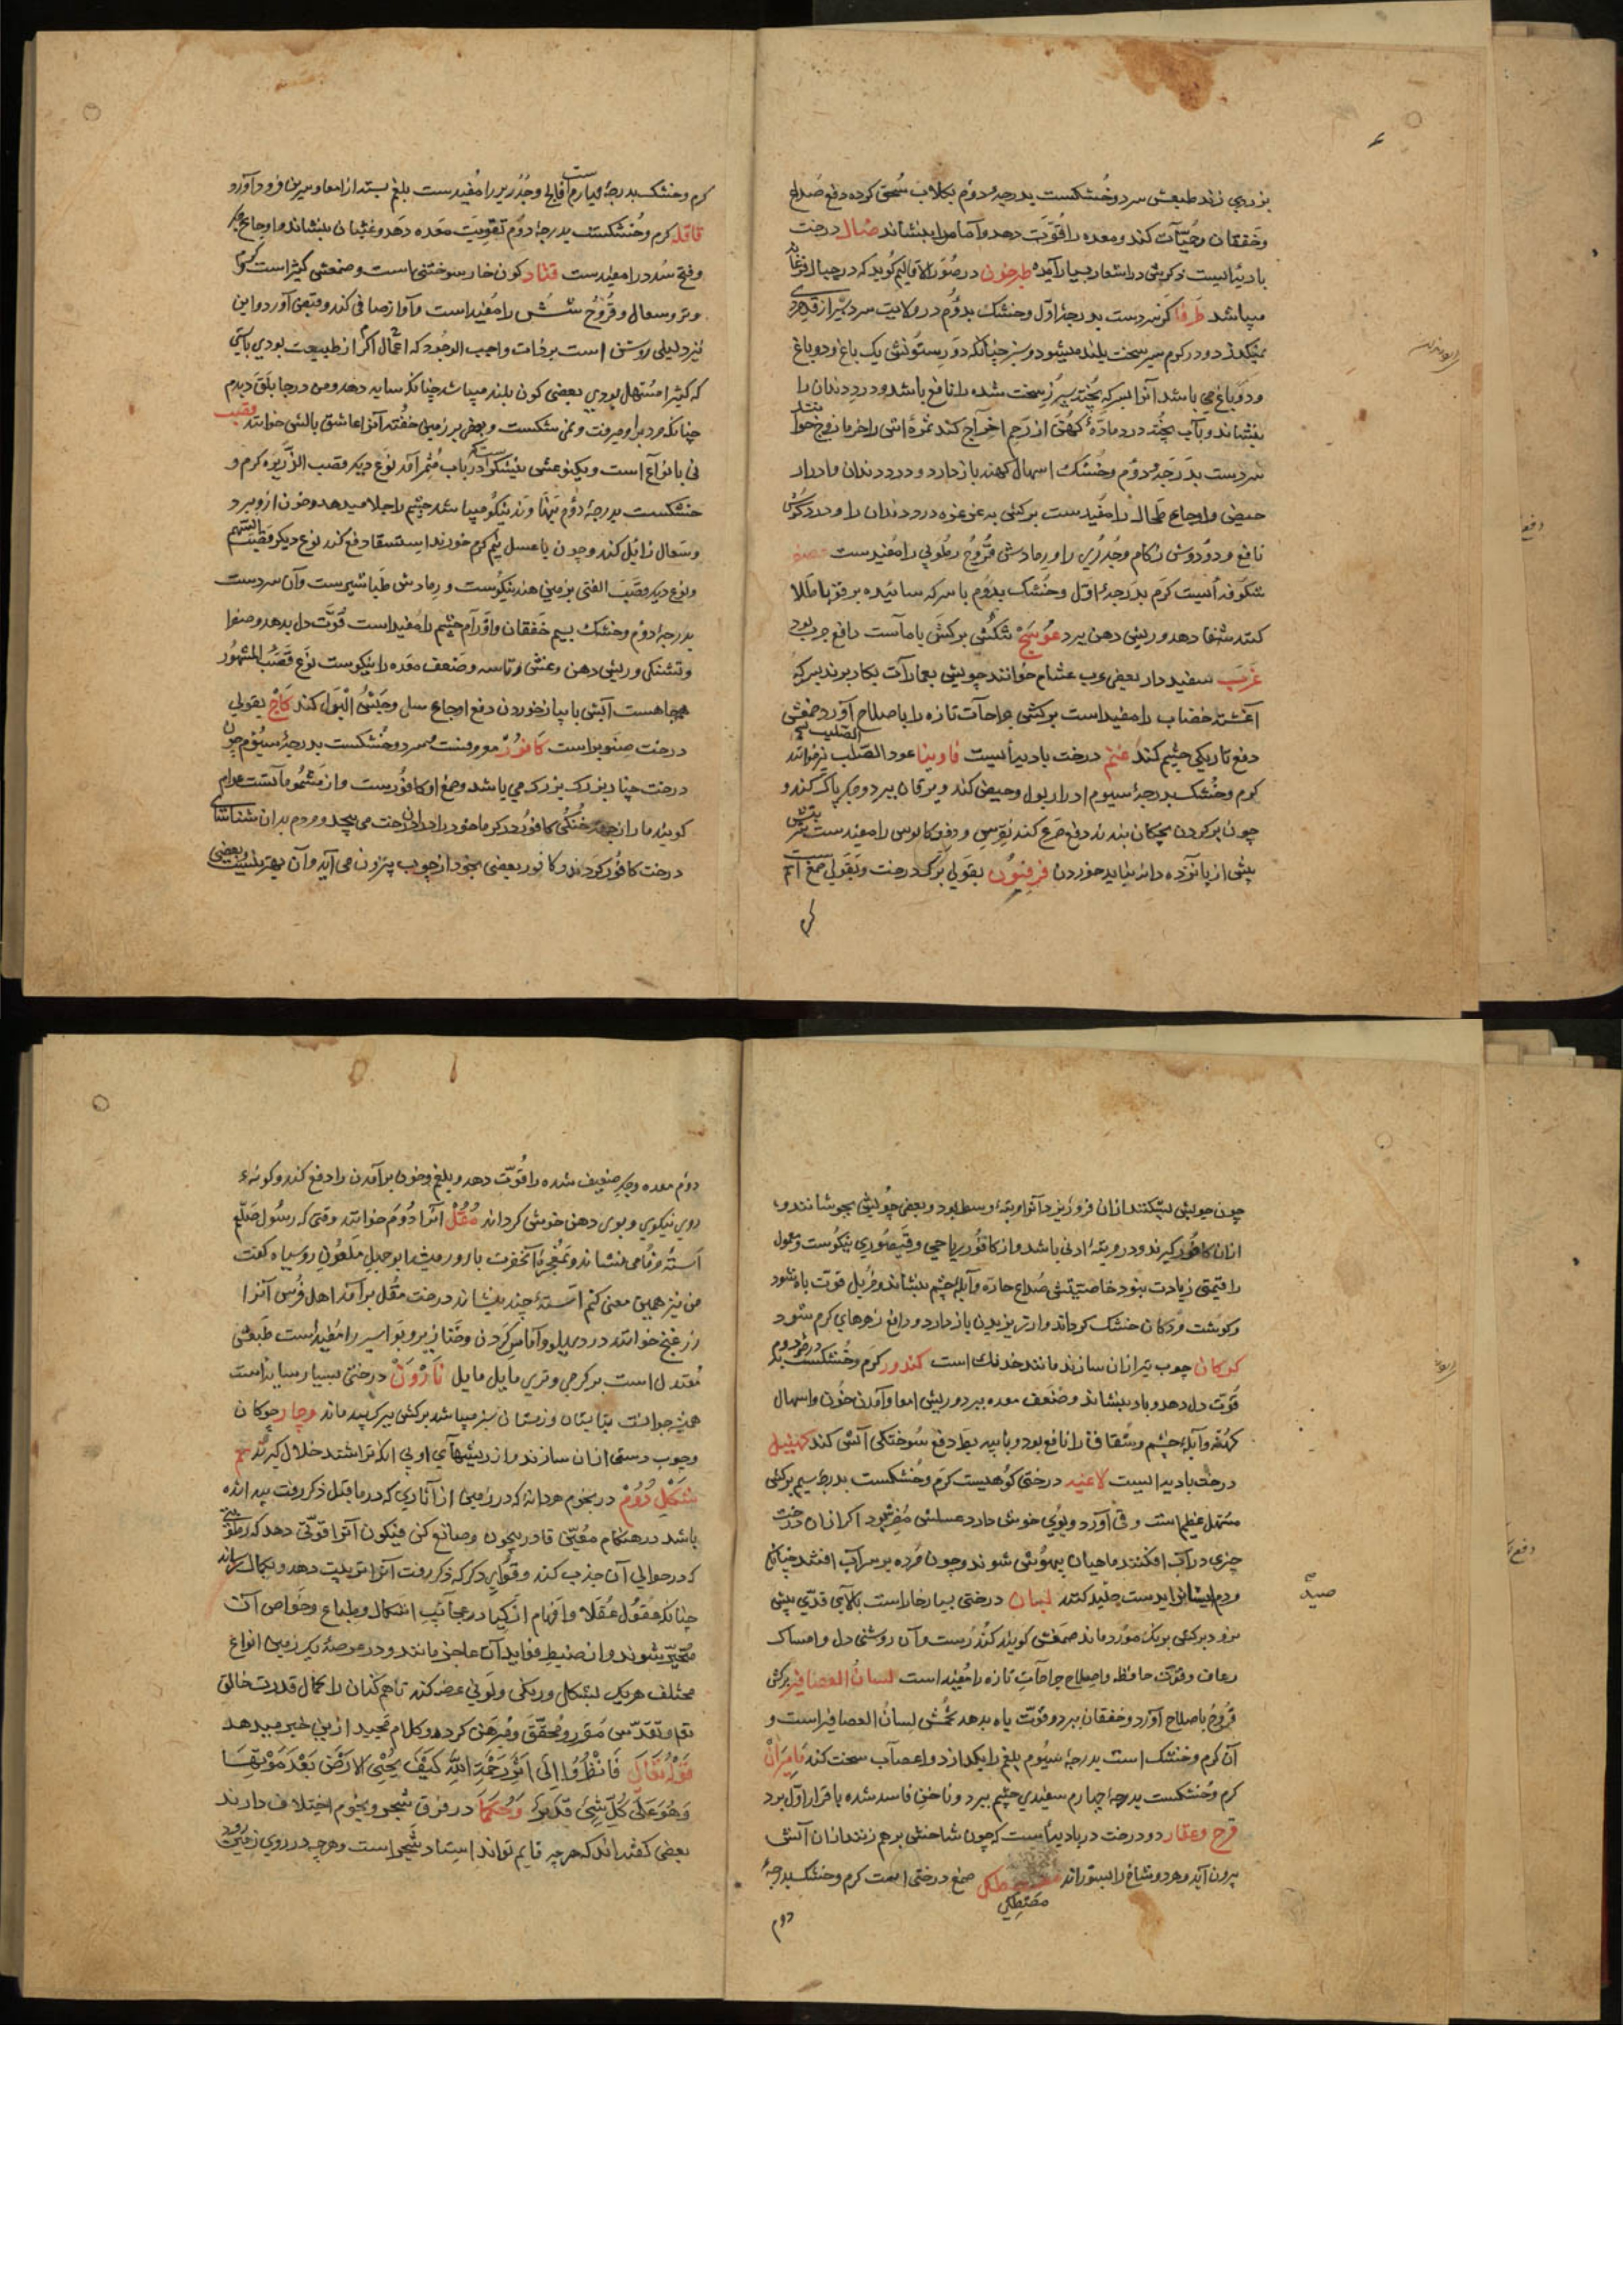 بزردی زند طبعش سرد و خشکست بدرجهٔ دوم بکلاب سحق کرده دفع صداع
و خفقان و حمیّات کند و معده را قوّت دهد و آماس را بنشاند ضال درخت
بادیه‌ایست ذکرش در اشعار بسیار آمده طرخون در صور الاقالیم کوید که در جبال فرغانه
میباشد طرفا کز سردست بدرجهٔ اول و خشک بدوم در ولایت سردسیر از قد مردی
نمیکذرد و در کرم سیر سخت بلند میشود و سبز چنانکه در رستونش یک باغ و دو باغ
ودوباغ می باشد آنرا بسرکه پخته سپرز سخت شده را نافع باشد و درد دندان را
بنشاند و بآب پخته درد مادّهٔ کهن از رحم اخراج کند ثمرهٔ اش را خرمازوج خوانند
سردست بدرجهٔ دوم و خشک اسهال کهنه باز دارد و درد دندان و ادرار
حیض و اوجاع طحال را مفیدست برکش به غرغره درد دندان را و درد کوش
نافع و دودش زکام و جدری را و رمادش قروح رطوبی را مفیدست
شکوفه ایست کرم بدرجهٔ اول و خشک بدوم با سرکه سائیده بر قوبا طلا
کنند شفا دهد و ریش دهن ببرد عوسج شکش برکش با ماست دافع جرب بود
غرب سفیددار بعضی عرب عشام خوانند چوبش بعمارات بکار برند بسرکه
آغشته خضاب را مفیداست برکش جراحات تازه را باصلاح آورد صمغش
دفع تاریکی چشم کند عنم درخت بادیه‌ایست فاوینا عود الصلیب نیز خوانند
کرم و خشک بدرجهٔ سیوم ادرار بول و حیض کند و یرقان ببرد و جکر پاک کند و
چون بر کردن بچکان بندند دفع صرع کند نقرس و دفع کابوس را مفیدست
بیش از پانزده دانه نباید خوردن فرفیون بقولی برک درخت و بقولی صمغ است
کرم
کرم و خشک بدرجهٔ چهارم است فالج و جدری را مفیدست بلغم بسته از امعا و سرین فرود آورد
قاقله کرم و خشکست بدرجهٔ دوم تقویت معده دهد و غثیان بنشاند و اوجاع جکر
و فتح سدد را مفیدست قتاد کون خار سوختنی است و صمغش کثیراست کرم
و تر و سعال و قروح شش را مفیداست و آواز صافی کند و قبض آورد و این
نیز دلیلی روشن است بر ذات واجب الوجود که اعمال اکر از طبیعت بودی بایستی
که کثیرا مسهل بودی بعضی کون بلند میباشد چنانکه سایه دهد و من در جابلق دیدم
چنانکه مرد برو میرفت و نمی شکست و بعضی بر زمین خفته آنرا عاشق بالش خوانند قصب
نی بانواع است و یک نوعش نیشکراست در باب مثمر آمد نوع دیکر قصب الذریره کرم و
خشکست بدرجهٔ دوم تنها و تر نیکو میباشد چشم را جلا میدهد و خون ازو برد
و سعال زایل کند و چون با عسل نیم کرم خورند استسقا دفع کند نوع دیکر قصب السهم
و نوع دیکر قصب القنی بزمین هند نیکوست و رمادش طباشیرست و آن سردست
بدرجهٔ دوم و خشک بسیم خفقان و اورام چشم را مفیداست قوّت دل بدهد و صفرا
و تشنکی و ریش دهن و غشی و تاسه و ضعف معده را نیکوست نوع قصب المشهور
همه جا هست آبش با پیاز خوردن دفع اوجاع سل و حبس البول کند کاج بقولی
درخت صنوبراست کافور معروفست سرد و خشکست بدرجهٔ سیوم چون
درخت چنار بزرک بزرک می باشد و صمغ او کافورست و از مشمومات است عوام
کویند ماران جهة خنکی کافور در کرماخود را در آن درخت می پیچد و مردم بدان شناسای
درخت کافور کردند و کافور بعضی بخود از چوب بیرون می آید و آن بهترینست و بعضی
چون چوبش بشکنند ازان فرو ریزد آنرا رتبهٔ وسط بود و بعضی چوبش بجوشانند و
ازان کافور کیرند و در رتبهٔ ادنی باشد و از کافور ریاحی و قیصوری نیکوست و معمول
را قیمتی زیادت نبود خاصیتش صداع حاره و آبلهٔ چشم بنشاند و مزیل قوت باه شود
و کوشت مردکان خشک کرداند و از ریزیدن باز دارد و دافع زهرهای کرم شود
کرکان چوب تیر ازان سازند مانند خدنک است کندور کرم و خشکست بدرجهٔ دوم
قوت دل دهد و باد بنشاند و ضعف معده ببرد و ریش امعا و آمدن خون و اسهال
کهنه و آبلهٔ چشم و شقاق را نافع بود و با پیه بط دفع سوختکی آتش کند کهنبل
درخت بادیه‌ایست لاعیه درختی کوهیست کرم و خشکست بدرجهٔ سیم برکش
مسهل عظیم است و قی آورد و بوی خوش دارد عسلش مضر بود اکر ازان درخت
چیزی در آب افکنند ماهیان بیهوش شوند و چون مرده بر سر آب افتند چنانکه
مردم ایشانرا بدست صید کنند لبان درختی بسیار خاراست بالای قدی بیش
نرود برکش ببرک مورد ماند صمغش کویند کندرست و آن روشنی دل و امساک
رعاف و قوّت حافظه و اصلاح جراحات تازه را مفیداست لسان العصافیر برکش
قروح باصلاح آورد و خفقان ببرد و قوّت باه بدهد ثمرش لسان العصافیراست و
آن کرم و خشک است بدرجهٔ سیوم بلغم را بکدازد و اعصاب سخت کند مامیران
کرم و خشکست بدرجهٔ چهارم سفیدی چشم ببرد و ناخن فاسد شده با قرار اول برد
مرخ و عفار دو درخت در بادیه است که چون شاخش بر هم زنند ازان آتش
بیرون آید و هر دو شاخ را بسوزاند مصطکی صمغ درختی است کرم و خشک بدرجهٔ
مصطکی
دوم
صید
دوم معده و جکر ضعیف شده را قوّت دهد و بلغم و خون برآمدن را دفع کند و کونهٔ
روی نیکوی و بوی دهن خوش کرداند مقل آنرا دوم خوانند وقتی که رسول صلعم
استهٔ خرما می نشاند و بمعجزهٔ آنحضرت بارور میشد ابوجهل ملعون روسیاه کفت
من نیز همین معنی کنم استهٔ چند بنشاند درخت مقل برآمد اهل فرس آنرا
خوانند درد پهلو و آماس کردن و خنازیر و بواسیر را مفیداست طبعش
معتدل است بر کرمی و تری مایل مایل نارون درختی بسیار سایه است
همیشه جوانست بتابستان و زمستان سبز میباشد برکش ببرک بید ماند و چار چوکان
و چوب دستی ازان سازند و از ریشهای او بی آنکه تراشند خلال کیرند
شکل دوم در نجوم هر دانه که در زمین از آثاری که در ماقبل ذکر رفت پیدا شده
باشد در هنکام معیّن قادر بیچون و صانع کن فیکون آنرا قوّتی دهد که رطوبتی
که در حوالی آن جذب کند و قوای دکر که ذکر رفت آنرا تربیت دهد و بکمال رساند
چنانکه عقول عقلا و افهام اذکیا در عجایب اشکال و طباع و خواص آن
متحیّر شوند و از ضبط فواید آن عاجز مانند و در عرصهٔ یک زمین انواع
مختلف هریک بشکلی و رنکی و لونی عرض کند تا همکنان را کمال قدرت خالق
تعالی و تقدّس مقرر و محقق و مبرهن کردد و کلام مجید ازین خبر میدهد
قوله تعالی فَانْظُرُوا اِلَی اَثَرِ رَحْمَةِ اللّٰهِ کَیْفَ یُحْیِی الْاَرْضَ بَعْدَ مَوْتِهَا
وَهُوَ عَلَی کُلِّ شَیْءٍ قَدِیرٌ و حکما در فرق شجر و نجوم اختلاف دارند
بعضی کفته اند که هرچه قایم تواند استاد شجراست و هرچه در روی زمین رود